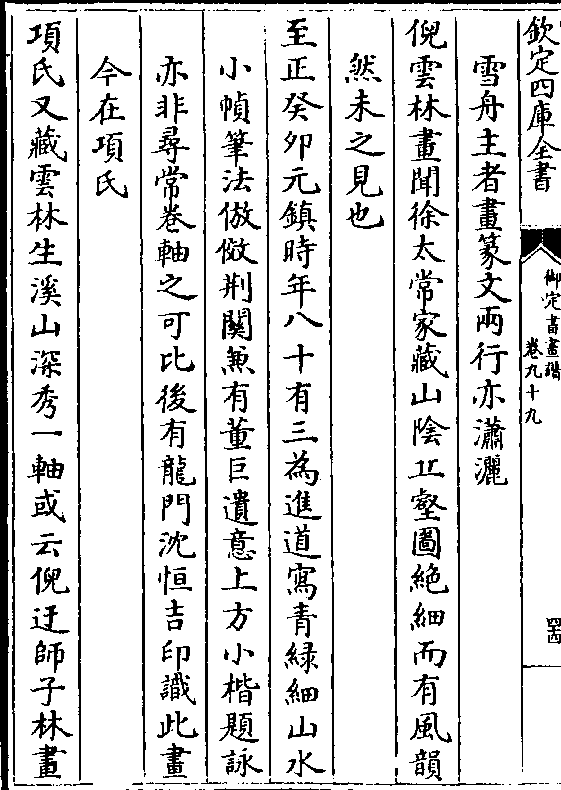 欽定四庫全書
御定書畫譜
卷九十九
四四
雪舟主者畫篆文兩行亦瀟灑
倪雲林畫聞徐太常家藏山陰丘壑圖絶細而有風韻
然未之見也
至正癸夘元鎮時年八十有三為進道寫青緑細山水
小幀筆法倣㑳荆關兼有董巨遺意上方小楷題詠
亦非尋常卷軸之可比後有龍門沈恒吉印識此畫
今在項氏
項氏又藏雲林生溪山深秀一軸或云倪迂師子林畫